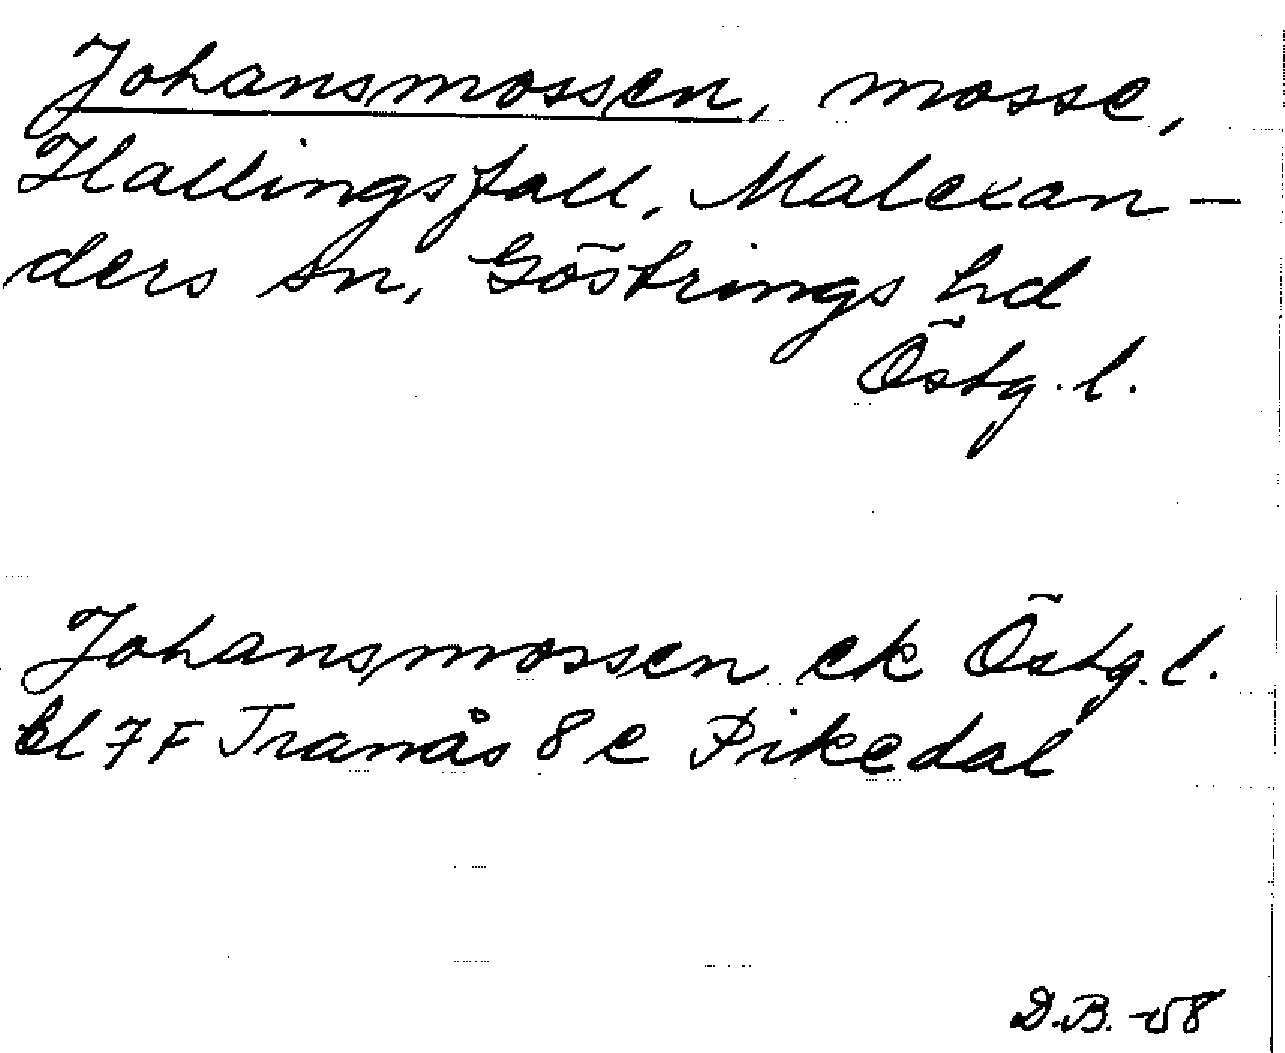 Johansmossen, mosse,
Hallingsfall, Malexan-
ders sn, Göstrings hd
Östg. l.
Johansmossen ek Östg. l.
bl 7 F Tranås 8 c Pikedal
D.B. -58